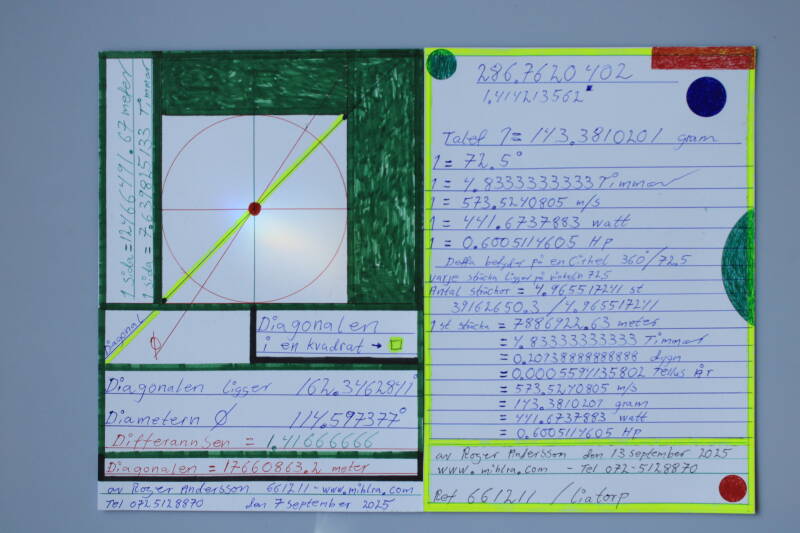 1 sida = 12466491.67 meter
1 sida = 7.639825133 Timmar
Diagonal
Ø
Diagonalen
i en kvadrat →
Diagonalen ligger 162.3462841°
Diametern Ø 114.597377°
Differannsen = 1.41666666
Diagonalen = 17660863.2 meter
av Roger Andersson 661211 - www.miblra.com
Tel 0725128870 den 7 september 2025
286.7620402
1.414213562
Talet 1 = 143.3810201 gram
1 = 72.5°
1 = 4.8333333333 Timmar
1 = 573.5240805 m/s
1 = 441.6737883 watt
1 = 0.6005114605 Hp
Detta betyder på en Cirkel 360°/72.5
varje sträcka ligger på vinkeln 72.5
Antal sträckor = 4.965517241 st
39162650.3 / 4.965517241
1 st sträcka = 7886922.63 meter
= 4.83333333333 Timmar
= 0.20138888888888 dygn
= 0.0005594135802 Tellus år
= 573.5240805 m/s
= 143.3810201 gram
= 441.6737883 watt
= 0.6005114605 Hp
av Roger Andersson den 13 september 2025
www.miblra.com - Tel 072-5128870
Ref 661211 / Liatorp